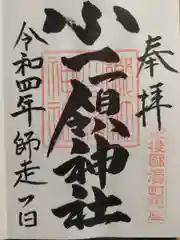 奉拝
小一領神社
令和四年師走一日